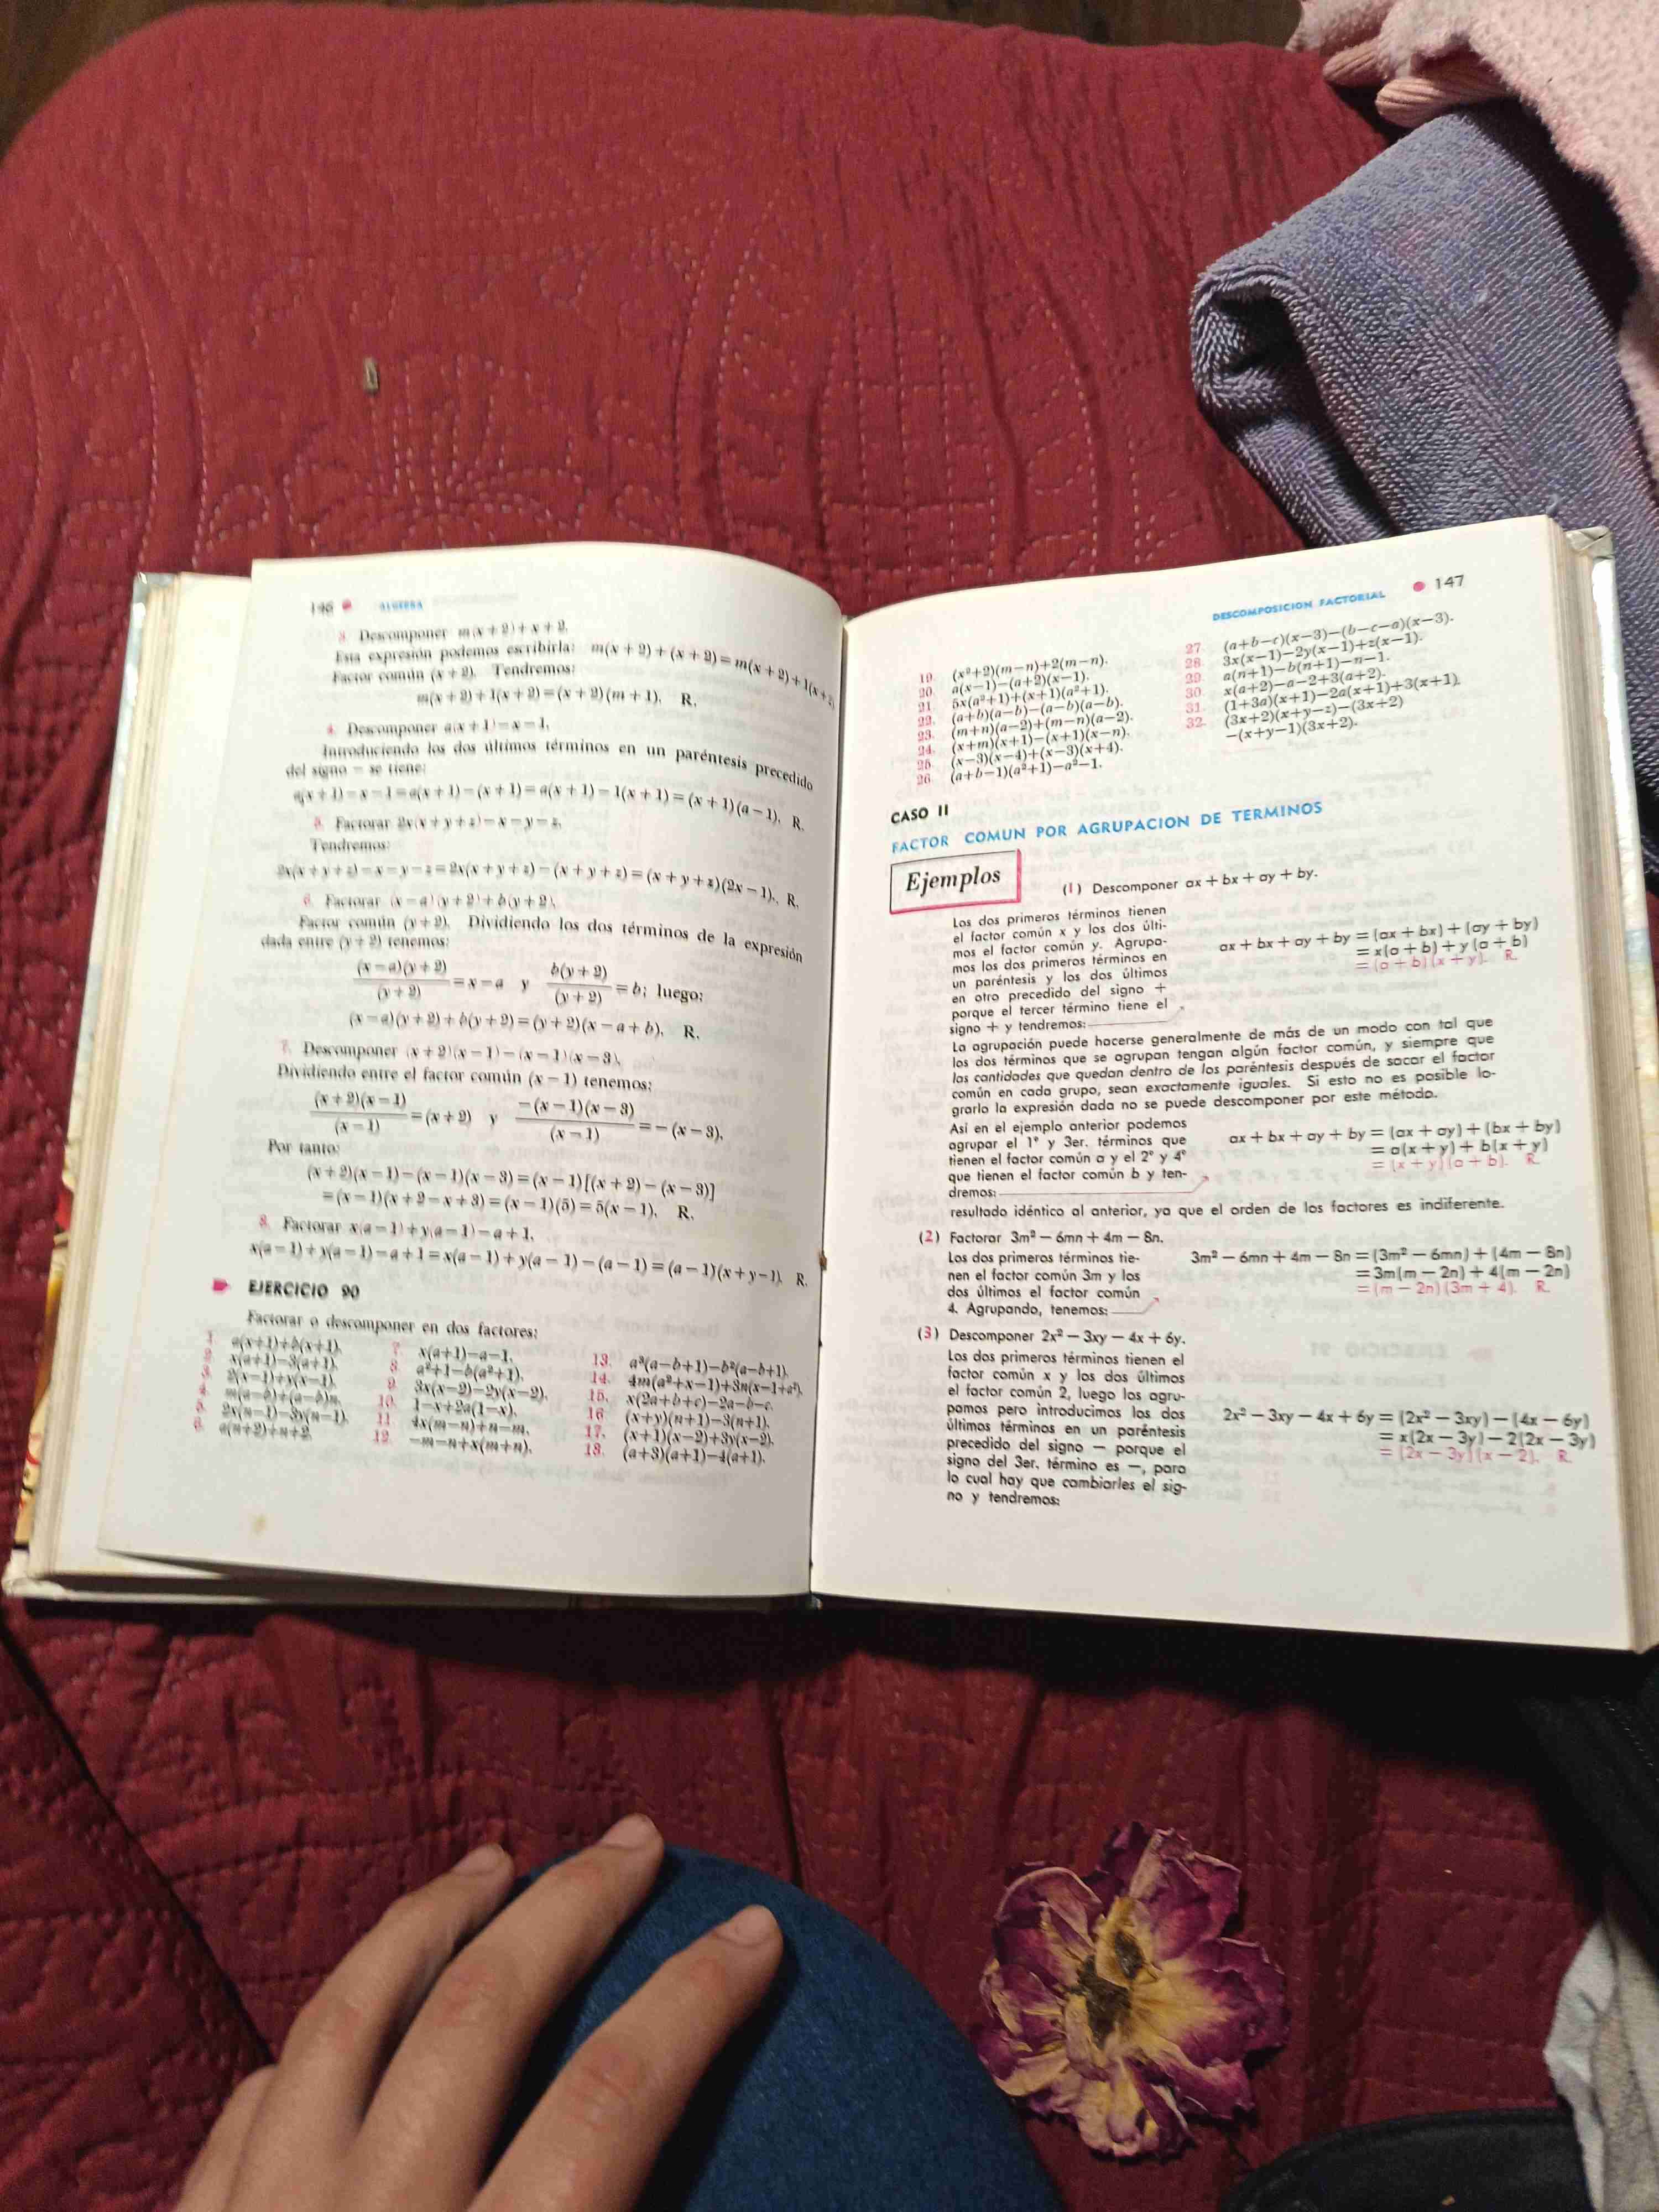 146 ALGEBRA
3. Descomponer m(x + 2) + x + 2.
Esta expresión podemos escribirla: m(x + 2) + (x + 2) = m(x + 2) + 1(x + 2)
Factor común (x + 2). Tendremos:
m(x + 2) + 1(x + 2) = (x + 2)(m + 1). R.
4. Descomponer a(x + 1) − x − 1.
Introduciendo los dos últimos términos en un paréntesis precedido
del signo − se tiene:
a(x + 1) − x − 1 = a(x + 1) − (x + 1) = a(x + 1) − 1(x + 1) = (x + 1)(a − 1). R.
5. Factorar 2x(x + y + z) − x − y − z.
Tendremos:
2x(x + y + z) − x − y − z = 2x(x + y + z) − (x + y + z) = (x + y + z)(2x − 1). R.
6. Factorar (x − a)(y + 2) + b(y + 2).
Factor común (y + 2). Dividiendo los dos términos de la expresión
dada entre (y + 2) tenemos:
(x − a)(y + 2) / (y + 2) = x − a y b(y + 2) / (y + 2) = b; luego:
(x − a)(y + 2) + b(y + 2) = (y + 2)(x − a + b). R.
7. Descomponer (x + 2)(x − 1) − (x − 1)(x − 3).
Dividiendo entre el factor común (x − 1) tenemos:
(x + 2)(x − 1) / (x − 1) = (x + 2) y −(x − 1)(x − 3) / (x − 1) = −(x − 3).
Por tanto:
(x + 2)(x − 1) − (x − 1)(x − 3) = (x − 1)[(x + 2) − (x − 3)]
= (x − 1)(x + 2 − x + 3) = (x − 1)(5) = 5(x − 1). R.
8. Factorar x(a − 1) + y(a − 1) − a + 1.
x(a − 1) + y(a − 1) − a + 1 = x(a − 1) + y(a − 1) − (a − 1) = (a − 1)(x + y − 1). R.
EJERCICIO 90
Factorar o descomponer en dos factores:
1. a(x+1)+b(x+1).
2. x(a+1)−3(a+1).
3. 2(x−1)+y(x−1).
4. m(a−b)+(a−b)n.
5. 2x(n−1)−3y(n−1).
6. a(n+2)+n+2.
7. x(a+1)−a−1.
8. a²+1−b(a²+1).
9. 3x(x−2)−2y(x−2).
10. 1−x+2a(1−x).
11. 4x(m−n)+n−m.
12. −m−n+x(m+n).
13. a³(a−b+1)−b²(a−b+1).
14. 4m(a²+x−1)+3n(x−1+a²).
15. x(2a+b+c)−2a−b−c.
16. (x+y)(n+1)−3(n+1).
17. (x+1)(x−2)+3y(x−2).
18. (a+3)(a+1)−4(a+1).
DESCOMPOSICION FACTORIAL 147
19. (x²+2)(m−n)+2(m−n).
20. a(x−1)−(a+2)(x−1).
21. 5x(a²+1)+(x+1)(a²+1).
22. (a+b)(a−b)−(a−b)(a−b).
23. (m+n)(a−2)+(m−n)(a−2).
24. (x+m)(x+1)−(x+1)(x−n).
25. (x−3)(x−4)+(x−3)(x+4).
26. (a+b−1)(a²+1)−a²−1.
27. (a+b−c)(x−3)−(b−c−a)(x−3).
28. 3x(x−1)−2y(x−1)+z(x−1).
29. a(n+1)−b(n+1)−n−1.
30. x(a+2)−a−2+3(a+2).
31. (1+3a)(x+1)−2a(x+1)+3(x+1).
32. (3x+2)(x+y−z)−(3x+2)
−(x+y−1)(3x+2).
CASO II
FACTOR COMUN POR AGRUPACION DE TERMINOS
Ejemplos
(1) Descomponer ax + bx + ay + by.
Los dos primeros términos tienen
el factor común x y los dos últi-
mos el factor común y. Agrupa-
mos los dos primeros términos en
un paréntesis y los dos últimos
en otro precedido del signo +
porque el tercer término tiene el
signo + y tendremos:
ax + bx + ay + by = (ax + bx) + (ay + by)
= x(a + b) + y(a + b)
= (a + b)(x + y). R.
La agrupación puede hacerse generalmente de más de un modo con tal que
los dos términos que se agrupan tengan algún factor común, y siempre que
las cantidades que quedan dentro de los paréntesis después de sacar el factor
común en cada grupo, sean exactamente iguales. Si esto no es posible lo-
grarlo la expresión dada no se puede descomponer por este método.
Así en el ejemplo anterior podemos
agrupar el 1º y 3er. términos que
tienen el factor común a y el 2º y 4º
que tienen el factor común b y ten-
dremos:
ax + bx + ay + by = (ax + ay) + (bx + by)
= a(x + y) + b(x + y)
= (x + y)(a + b). R.
resultado idéntico al anterior, ya que el orden de los factores es indiferente.
(2) Factorar 3m² − 6mn + 4m − 8n.
Los dos primeros términos tie-
nen el factor común 3m y los
dos últimos el factor común
4. Agrupando, tenemos:
3m² − 6mn + 4m − 8n = (3m² − 6mn) + (4m − 8n)
= 3m(m − 2n) + 4(m − 2n)
= (m − 2n)(3m + 4). R.
(3) Descomponer 2x² − 3xy − 4x + 6y.
Los dos primeros términos tienen el
factor común x y los dos últimos
el factor común 2, luego los agru-
pamos pero introducimos los dos
últimos términos en un paréntesis
precedido del signo − porque el
signo del 3er. término es −, para
lo cual hay que cambiarles el sig-
no y tendremos:
2x² − 3xy − 4x + 6y = (2x² − 3xy) − (4x − 6y)
= x(2x − 3y) − 2(2x − 3y)
= (2x − 3y)(x − 2). R.